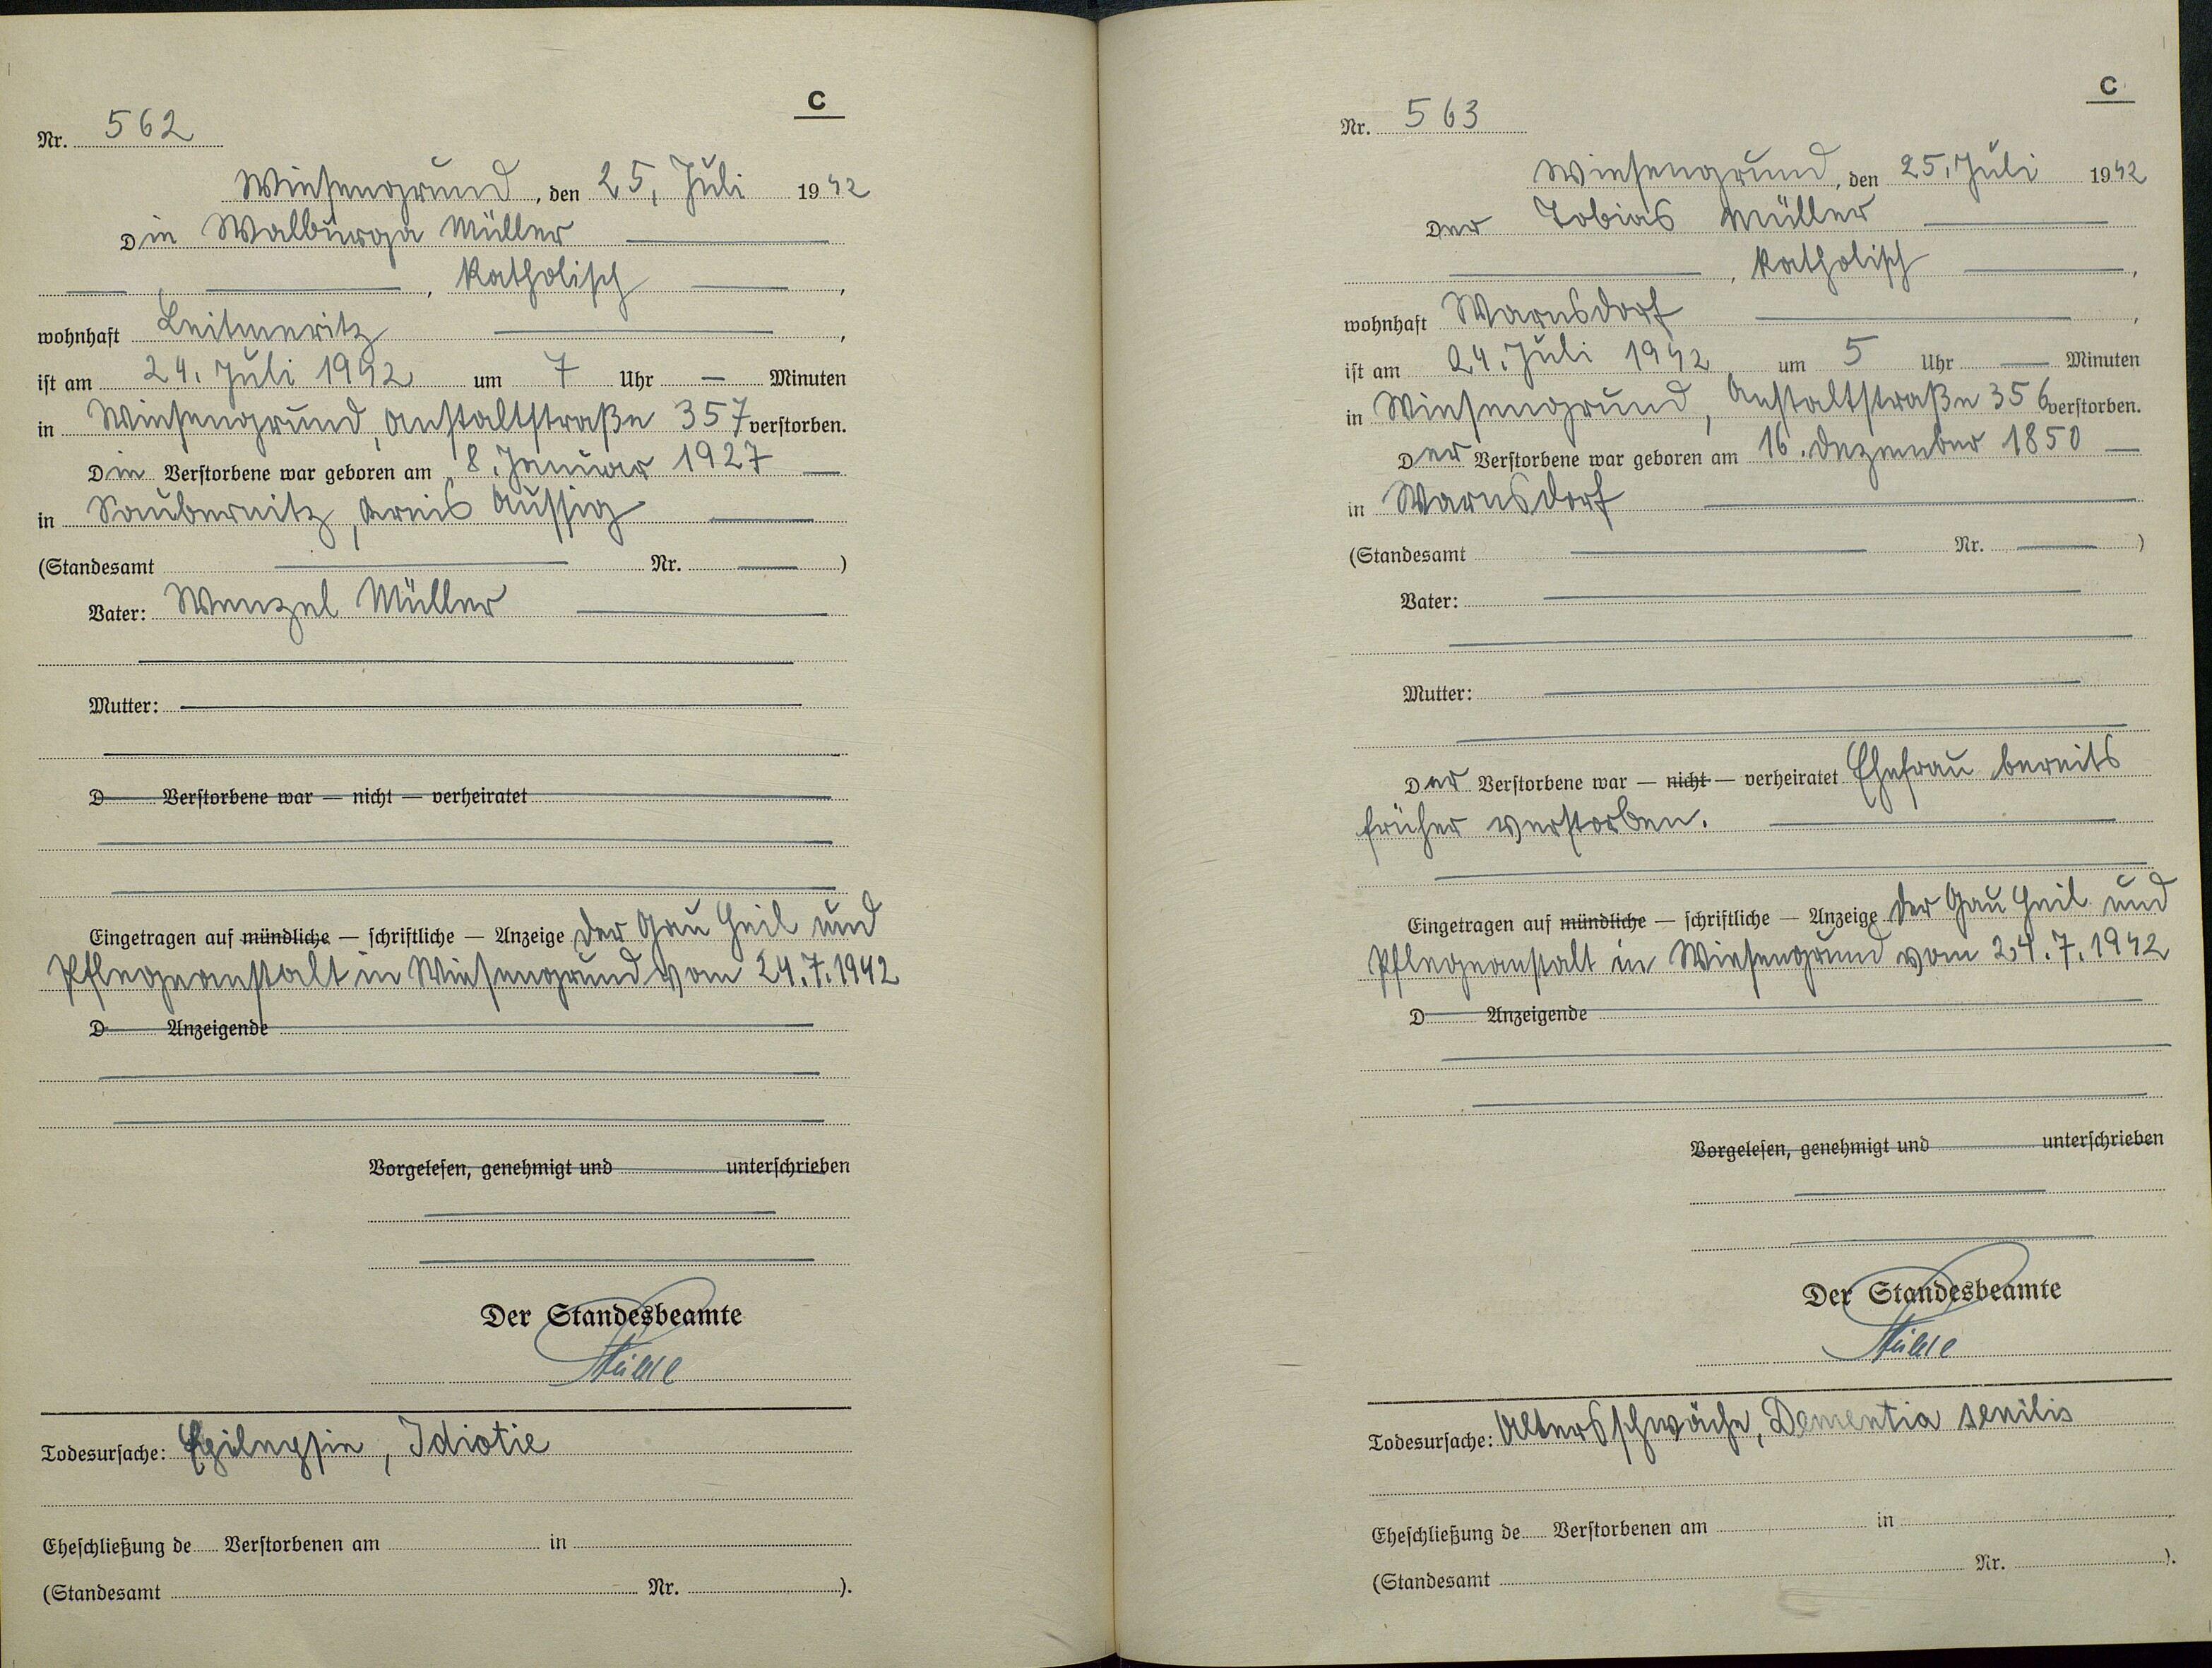 C
Nr. 562
Wiesengrund, den 25. Juli 1942
Die Walburga Müller
, katholisch ,
wohnhaft Leitmeritz ,
ist am 24. Juli 1942 um 7 Uhr — Minuten
in Wiesengrund, Anstaltstraße 357 verstorben.
Die Verstorbene war geboren am 8. Januar 1927 —
in Saubernitz, Kreis Aussig
(Standesamt Nr. )
Vater: Wenzel Müller
Mutter:
D Verstorbene war — nicht — verheiratet
Eingetragen auf mündliche — schriftliche — Anzeige der Gau Heil und
Pflegeanstalt in Wiesengrund vom 24.7.1942
D Anzeigende
Vorgelesen, genehmigt und unterschrieben
Der Standesbeamte
Todesursache: Epilepsie, Idiotie
Eheschließung de Verstorbenen am in
(Standesamt Nr. ).
C
Nr. 563
Wiesengrund, den 25. Juli 1942
Der Tobias Müller
, katholisch ,
wohnhaft Warnsdorf ,
ist am 24. Juli 1942 um 5 Uhr — Minuten
in Wiesengrund, Anstaltstraße 356 verstorben.
Der Verstorbene war geboren am 16. Dezember 1850 —
in Warnsdorf
(Standesamt Nr. )
Vater:
Mutter:
Der Verstorbene war — nicht — verheiratet Ehefrau bereits
früher verstorben.
Eingetragen auf mündliche — schriftliche — Anzeige der Gau Heil und
Pflegeanstalt in Wiesengrund vom 24.7.1942
D Anzeigende
Vorgelesen, genehmigt und unterschrieben
Der Standesbeamte
Todesursache: Altersschwäche, Dementia senilis
Eheschließung de Verstorbenen am in
(Standesamt Nr. ).